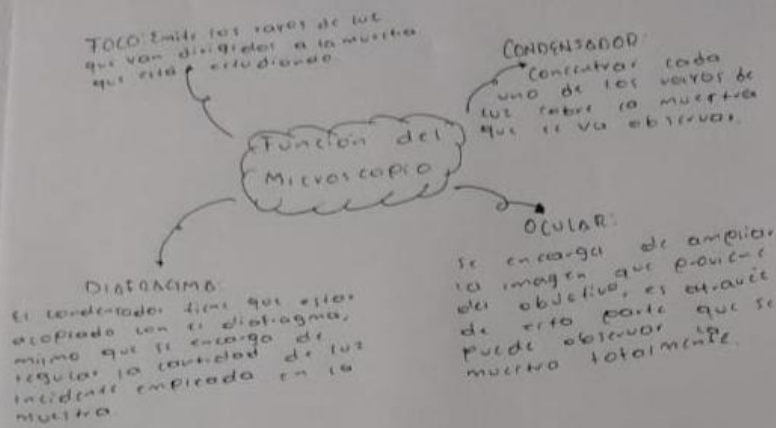 FOCO: Emite los rayos de luz
que van dirigidos a la muestra
que está estudiando.
CONDENSADOR:
Concentrar cada
uno de los rayos de
luz sobre la muestra
que se va observar.
Función del
Microscopio
DIAFRAGMA:
El condensador tiene que estar
acoplado con el diafragma,
mismo que se encarga de
regular la cantidad de luz
incidente empleada en la
muestra
OCULAR:
se encarga de ampliar
la imagen que proviene
del objetivo, es através
de esta parte que se
puede observar la
muestra totalmente.